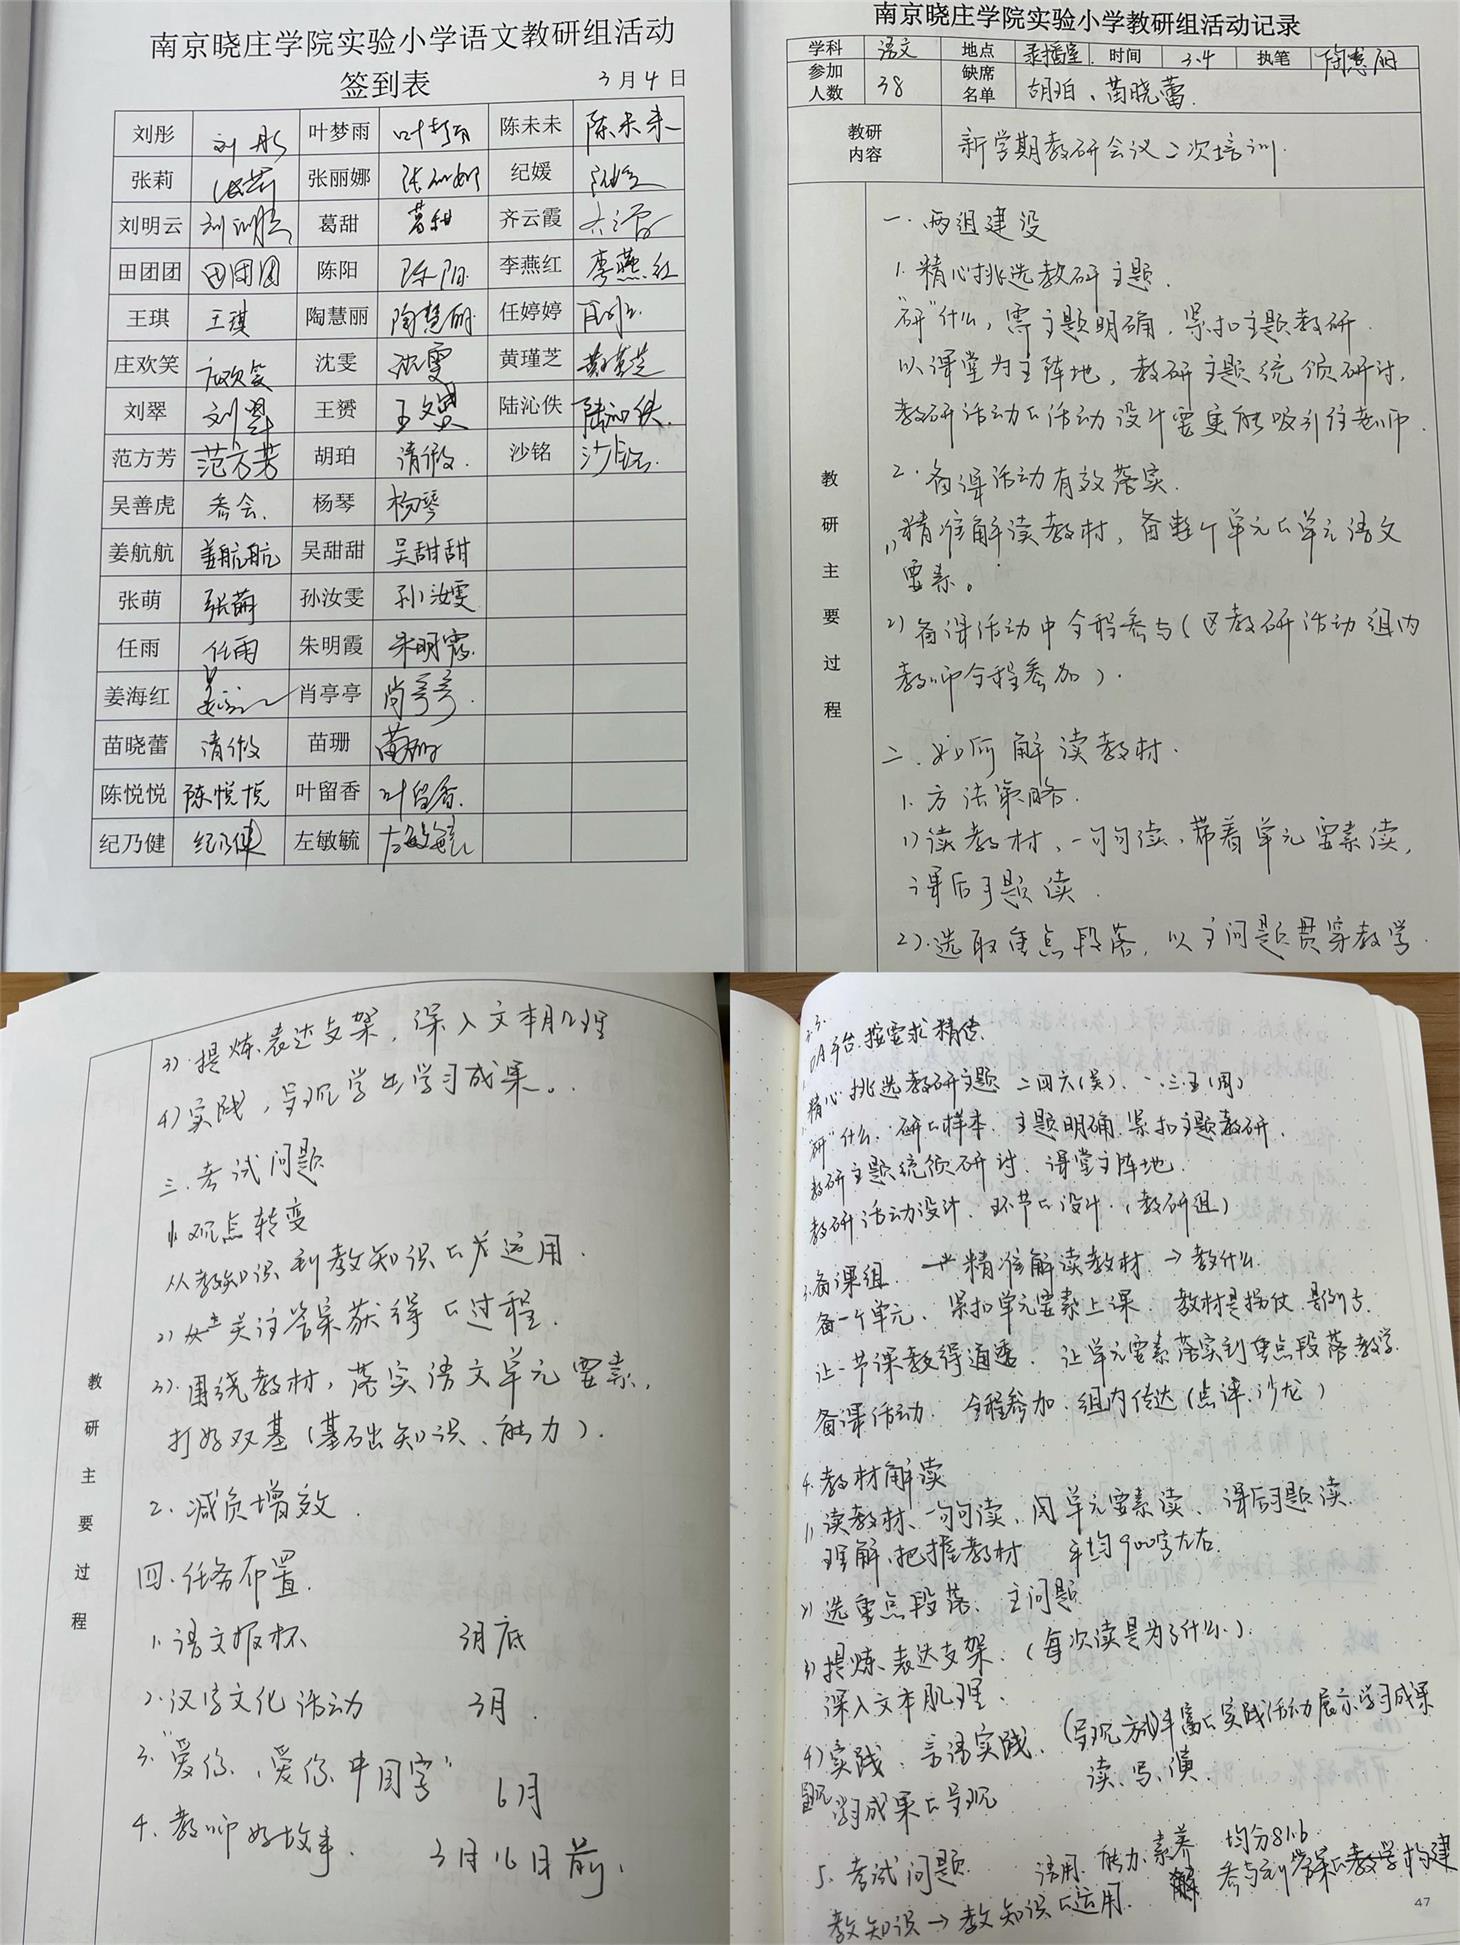 南京晓庄学院实验小学语文教研组活动
签到表
3月4日
刘彤 刘彤 叶梦雨 叶梦雨 陈未未 陈未未
张莉 张莉 张丽娜 张丽娜 纪媛
刘明云 刘明云 葛甜 葛甜 齐云霞
田团团 田团团 陈阳 陈阳 李燕红 李燕红
王琪 王琪 陶慧丽 陶慧丽 任婷婷
庄欢笑 庄欢笑 沈雯 沈雯 黄瑾芝 黄瑾芝
刘翠 刘翠 王赟 王赟 陆沁佚 陆沁佚
范方芳 范方芳 胡珀 请假 沙铭 沙铭
吴善虎 参会 杨琴 杨琴
姜航航 姜航航 吴甜甜 吴甜甜
张萌 张萌 孙汝雯 孙汝雯
任雨 任雨 朱明霞 朱明霞
姜海红 肖亭亭 肖亭亭
苗晓蕾 请假 苗珊 苗珊
陈悦悦 陈悦悦 叶留香 叶留香
纪乃健 纪乃健 左敏毓 左敏毓
南京晓庄学院实验小学教研组活动记录
学科 语文 地点 录播室 时间 3.4 执笔 陶慧丽
参加人数 38 缺席名单 胡珀、苗晓蕾
教研内容 新学期教研会议二次培训
教研主要过程
一、两组建设
1.精心挑选教研主题.
"研"什么,需主题明确,紧扣主题教研.
以课堂为主阵地,教研主题统领研讨,
教研活动的活动设计要更能吸引住老师.
2.备课活动有效落实.
1)精准解读教材,备整个单元的单元语文
要素。
2)备课活动中全程参与(区教研活动组内
教师全程参加).
二.如何解读教材.
1.方法策略.
1)读教材、一句句读、带着单元要素读,
课后习题读.
2).选取重点段落,以主问题贯穿教学.
3).提炼表达支架,深入文本肌理
4)实践,呈现学生学习成果。
教研主要过程
三.考试问题
1.观点转变
从教知识到教知识的运用.
2)关注答案获得的过程.
3).围绕教材,落实语文单元要素,
打好双基(基础知识、能力).
2.减负增效.
四.任务布置.
1.语文报杯 3月底
2.汉字文化活动 3月.
3."爱你,爱你中国字" 6月
4.教师好故事. 3月16日前.
3.3.
OA平台.按要求精传.
精心挑选教研主题 二四六(吴)、一、三.五(周)
"研"什么.研的样本.主题明确.紧扣主题教研.
教研主题统领研讨.课堂主阵地.
教研活动设计.环节的设计.(教研组)
3.备课组.精准解读教材.→教什么.
备一个单元.紧扣单元要素上课.教材是拐仗.是例子.
让一节课教得通透.让单元要素落实到重点段落教学.
备课活动.全程参加.组内传达(点评.沙龙)
4.教材解读
1)读教材、一句句读、用单元要素读、课后习题读.
理解.把握教材 平均900字左右.
2)选重点段落、主问题
3)提炼表达支架.(每次读是为了什么.)
深入文本肌理.
4)实践.言语实践.(呈现方式)丰富的实践活动展示学习成果
读.写.演.
学习成果的呈现
5.考试问题. 语用.能力.素养 均分81.6
教知识→教知识的运用.
47